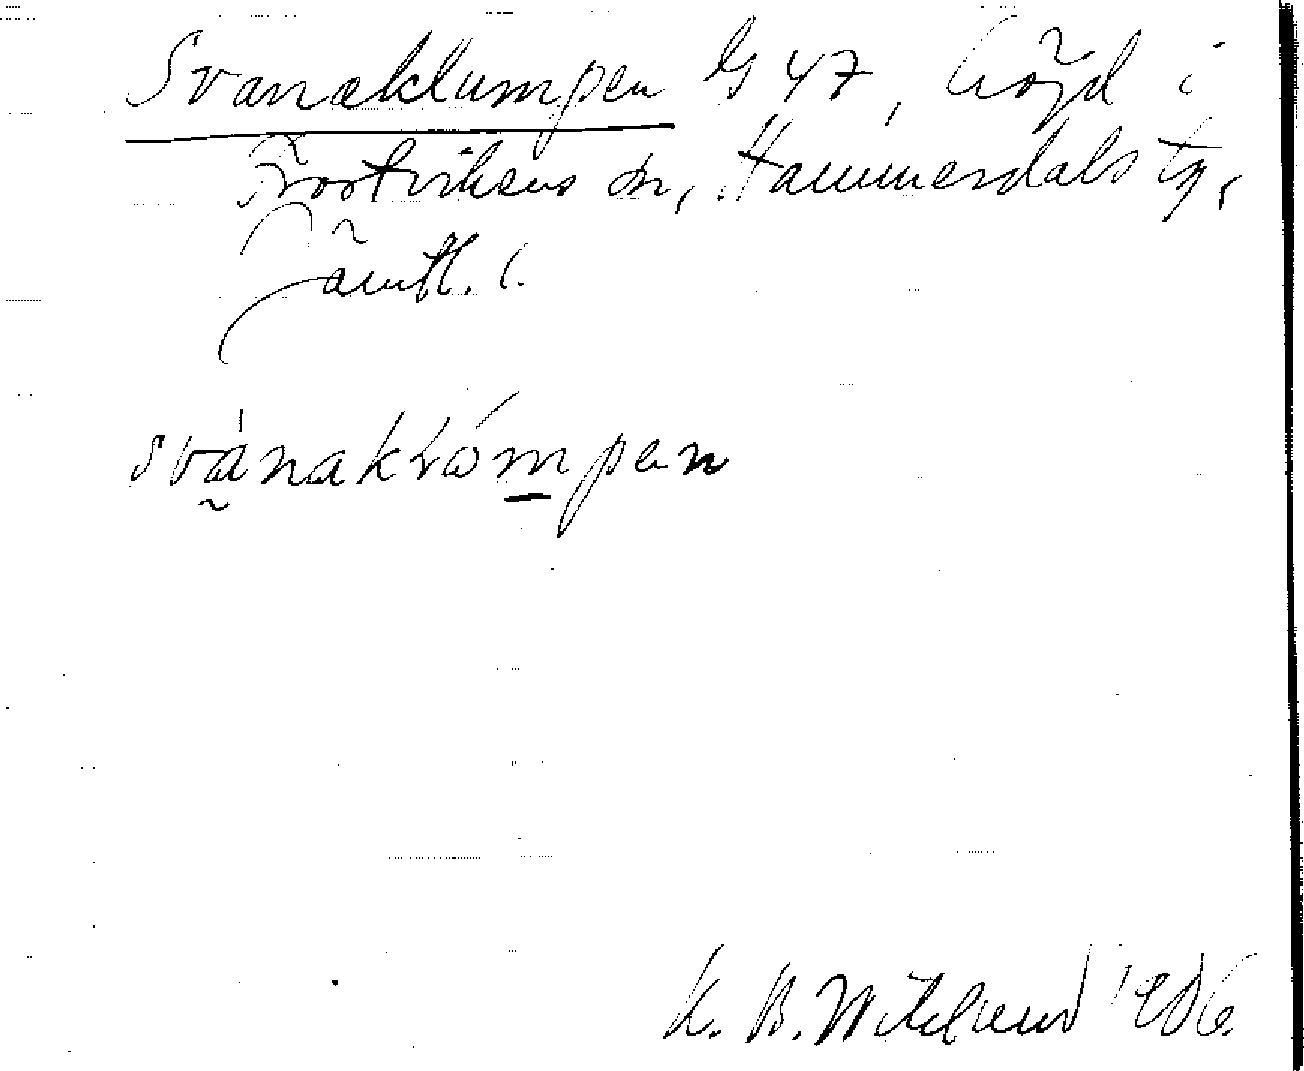 Svaneklumpen G 47, höjd i
Frostvikens sn, Hammerdals tg,
Jämtl. l.
svànaklómpen
K. B. Wiklund 1906.